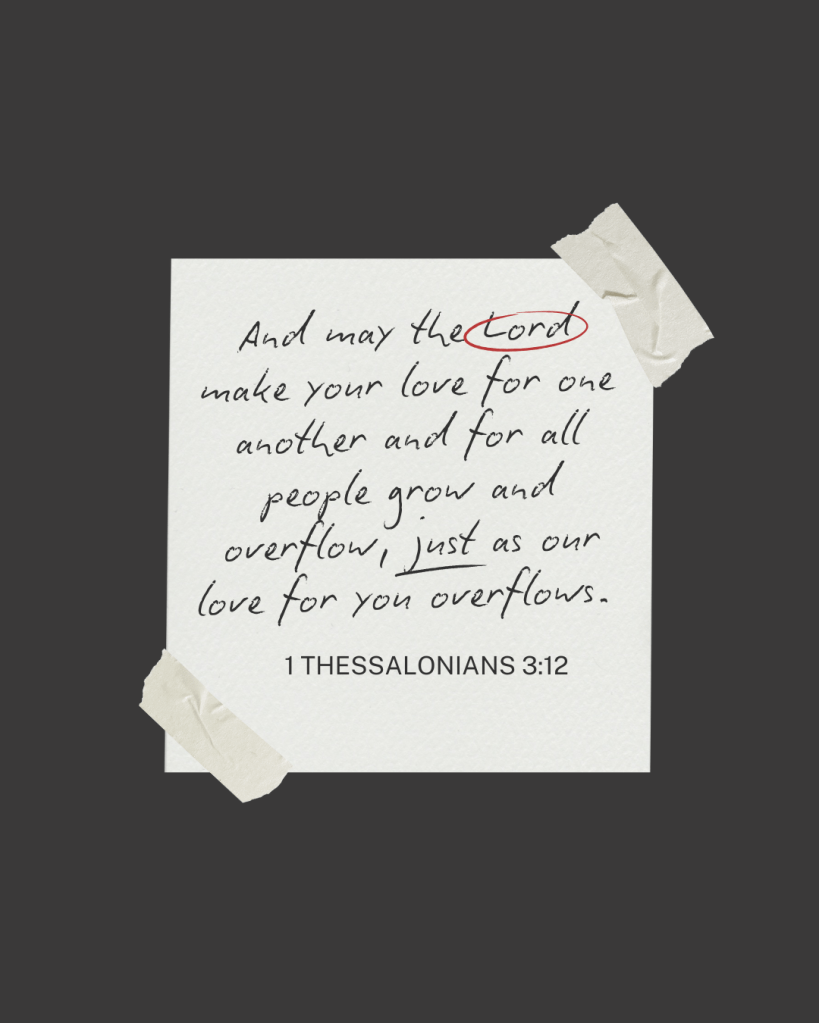 And may the Lord
make your love for one
another and for all
people grow and
overflow, just as our
love for you overflows.
1 THESSALONIANS 3:12